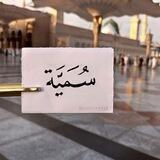 سُمَيَّة